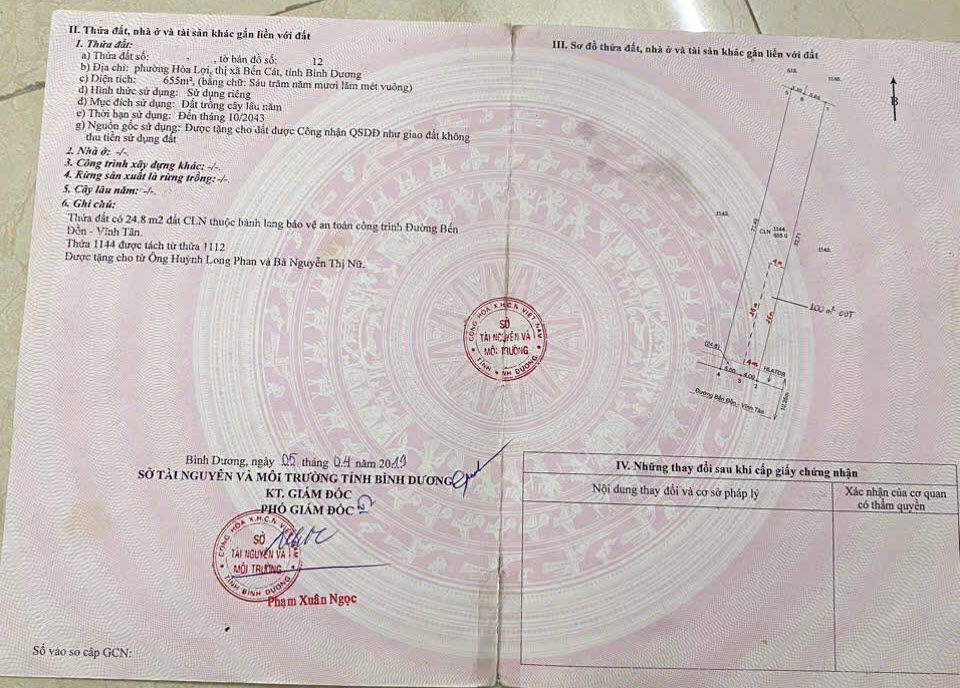 II. Thửa đất, nhà ở và tài sản khác gắn liền với đất
1. Thửa đất:
a) Thửa đất số: , tờ bản đồ số: 12
b) Địa chỉ: phường Hòa Lợi, thị xã Bến Cát, tỉnh Bình Dương
c) Diện tích: 655m², (bằng chữ: Sáu trăm năm mươi lăm mét vuông)
d) Hình thức sử dụng: Sử dụng riêng
đ) Mục đích sử dụng: Đất trồng cây lâu năm
e) Thời hạn sử dụng: Đến tháng 10/2043
g) Nguồn gốc sử dụng: Được tặng cho đất được Công nhận QSDĐ như giao đất không
thu tiền sử dụng đất
2. Nhà ở: -/-.
3. Công trình xây dựng khác: -/-.
4. Rừng sản xuất là rừng trồng: -/-.
5. Cây lâu năm: -/-.
6. Ghi chú:
Thửa đất có 24.8 m2 đất CLN thuộc hành lang bảo vệ an toàn công trình Đường Bến
Đồn - Vĩnh Tân.
Thửa 1144 được tách từ thửa 1112
Được tặng cho từ Ông Huỳnh Long Phan và Bà Nguyễn Thị Nữ.
CỘNG HÒA X.H.C.N VIỆT NAM
SỞ
TÀI NGUYÊN VÀ
MÔI TRƯỜNG
TỈNH BÌNH DƯƠNG
Bình Dương, ngày 05 tháng 04 năm 2019
SỞ TÀI NGUYÊN VÀ MÔI TRƯỜNG TỈNH BÌNH DƯƠNG
KT. GIÁM ĐỐC
PHÓ GIÁM ĐỐC
CỘNG HÒA X.H.C.N VIỆT NAM
SỞ
TÀI NGUYÊN VÀ
MÔI TRƯỜNG
TỈNH BÌNH DƯƠNG
Phạm Xuân Ngọc
Số vào sổ cấp GCN:
III. Sơ đồ thửa đất, nhà ở và tài sản khác gắn liền với đất
B
1143
CLN 1144
655.0
4m
25m
25m
100 m² ODT
4m
(24.8)
HLATĐB
5.00 4.00
4 3 2
Đường Bến Đồn - Vĩnh Tân
IV. Những thay đổi sau khi cấp giấy chứng nhận
Nội dung thay đổi và cơ sở pháp lý
Xác nhận của cơ quan
có thẩm quyền